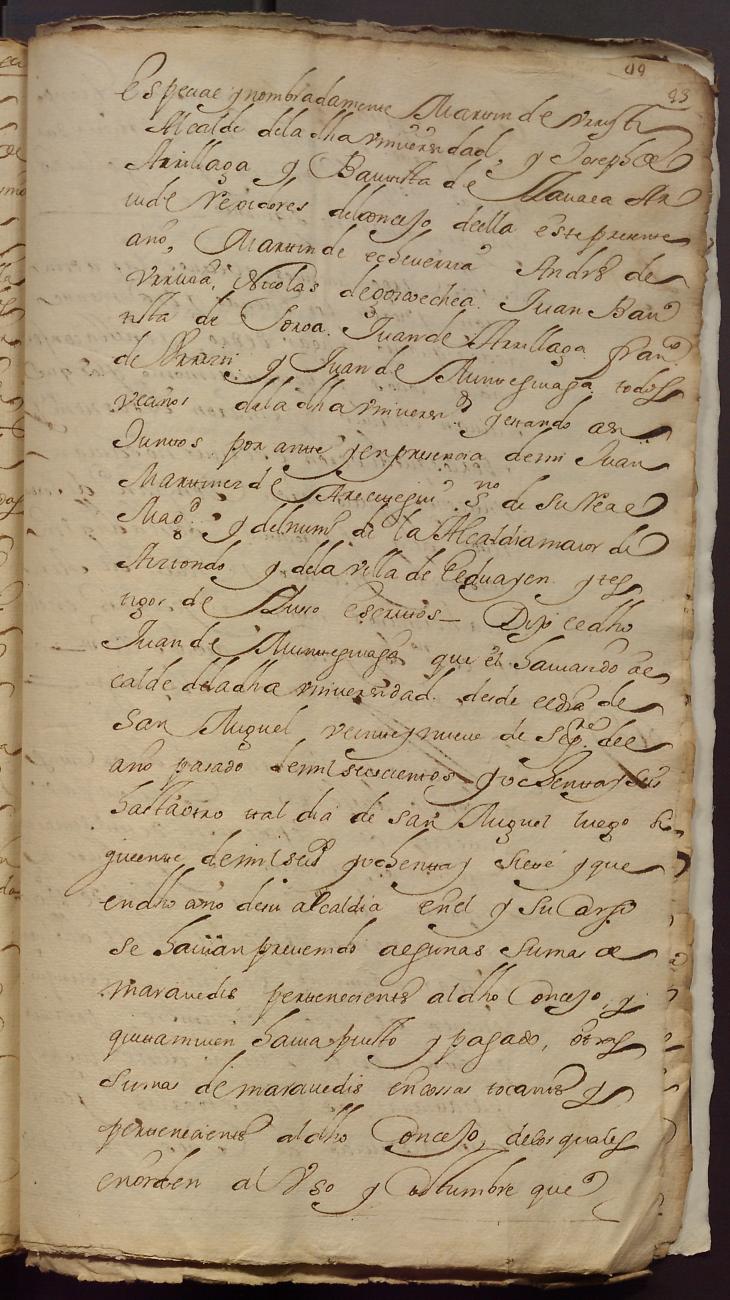 49
93
Espeçiae y nombradamente Martin de
Alcalde dela dha vniuersidad, y Joseph de
Arrillaga y Bauptista de
de Rexidores del conçejo deella este presente
año, Martin de echeverria Andres de
Vrruga, Nicolas de goicoechea. Juan Bau
tista de Soroa. Juan de Arrillaga franco
de y Juan de Amunseguiaga todos
vecinos dela dha vniuersd y estando assi
Juntos por ante y en presencia demi Juan
Martinez de Areiçtegui sno de Su Real
Magd y del numo de la Alcaldia maior de
Aiztondo y dela villa de Segura y tes
tigos de Yuso escritos_ Dijo el dho
Juan de Amunseguiaga que el hauiendo al
calde dela dha vniuersidad desde el dia de
San Miguel veinte y nueve de Sepre del
año pasado de mil seiscientos y ochenta y seis
hasta otro tal dia de san Miguel luego si
guiente de mil seis y ochenta y siete y que
en dho año desu alcaldia en el y su Cargo
se hauian prevenido algunas sumas de
maravedis pertenecientes al dho Conçejo, y
quitamvien hauia puesto y pagado, otras
sumas de maravedis en cossas tocantes y
pertenecientes al dho Conçejo, delos quales
en orden al Vso y Costumbre que